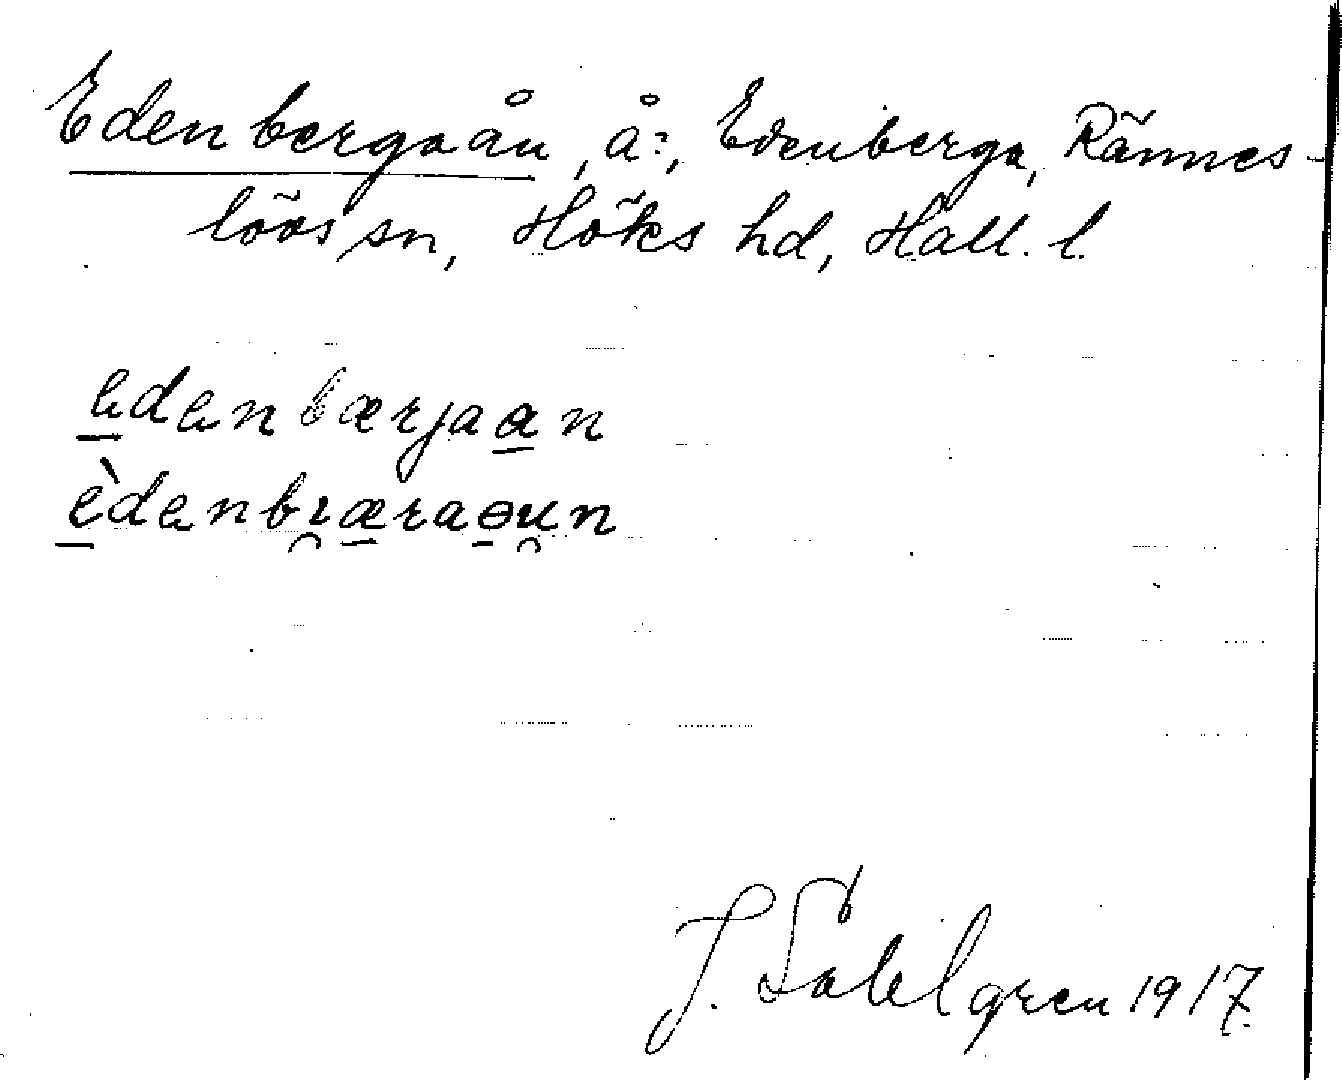 Edenbergaån, å:, Edenberga, Rännes-
lövs sn, Höks hd, Hall. l.
edenbærjaan
èdenbıæraɵun
J. Sahlgren 1917.